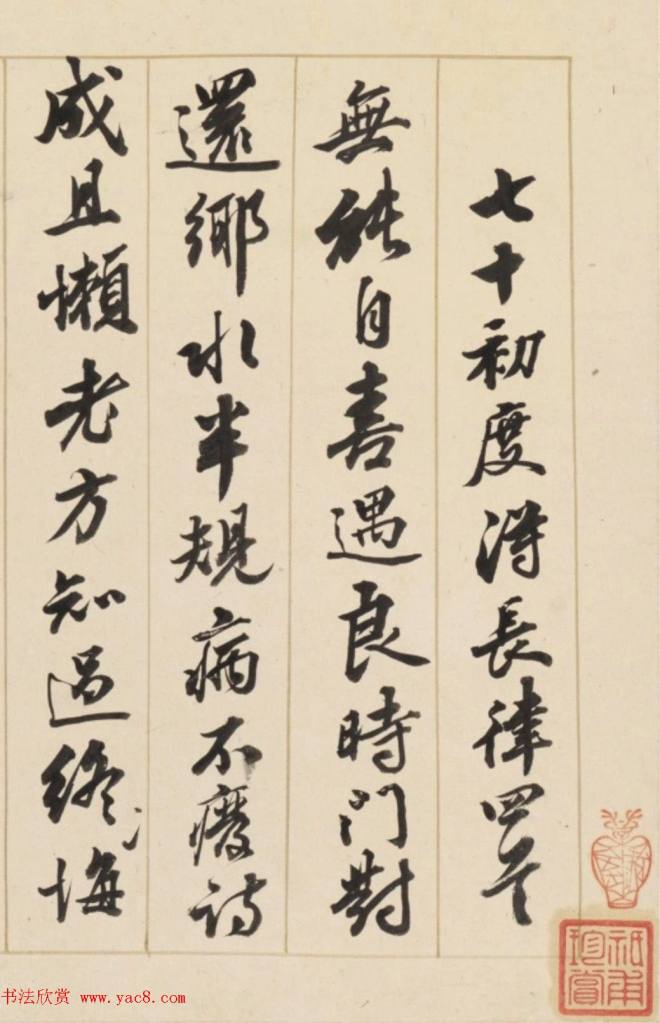 七十初度得長律四首
無能自喜遇良時門對
還鄉水半規病不廢詩
成且懶老方知過終悔
祇甫珍賞
书法欣赏 www.yac8.com